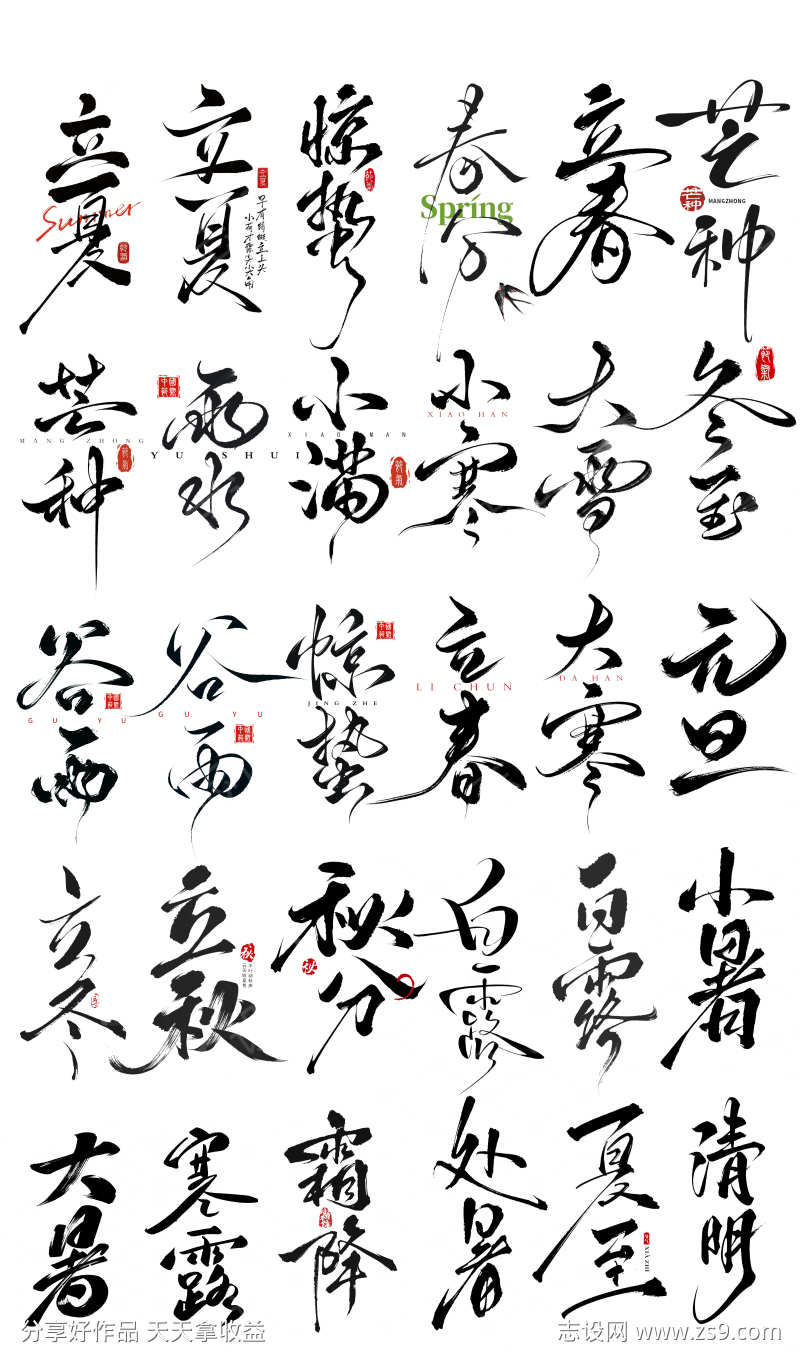 立夏
Summer
立夏
惊蛰
春分
Spring
立春
芒种
芒种
MANGZHONG
芒种
MANG ZHONG
雨水
YU SHUI
小满
XIAO MAN
小寒
XIAO HAN
大雪
冬至
谷雨
GU YU
谷雨
GU YU
惊蛰
JING ZHE
立春
LI CHUN
大寒
DA HAN
元旦
立冬
立秋
秋
秋分
秋
白露
白露
小暑
大暑
寒露
霜降
处暑
夏至
XIA ZHI
清明
分享好作品 天天拿收益
志设网 www.zs9.com